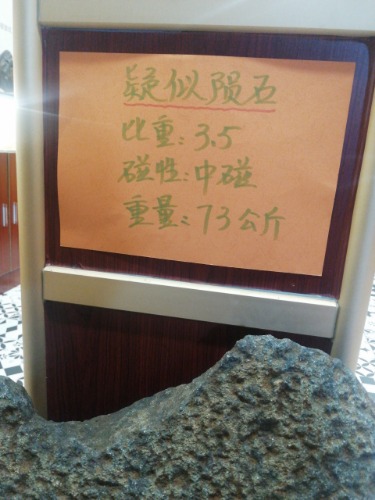 疑似陨石
比重:3.5
磁性:中磁
重量:73公斤